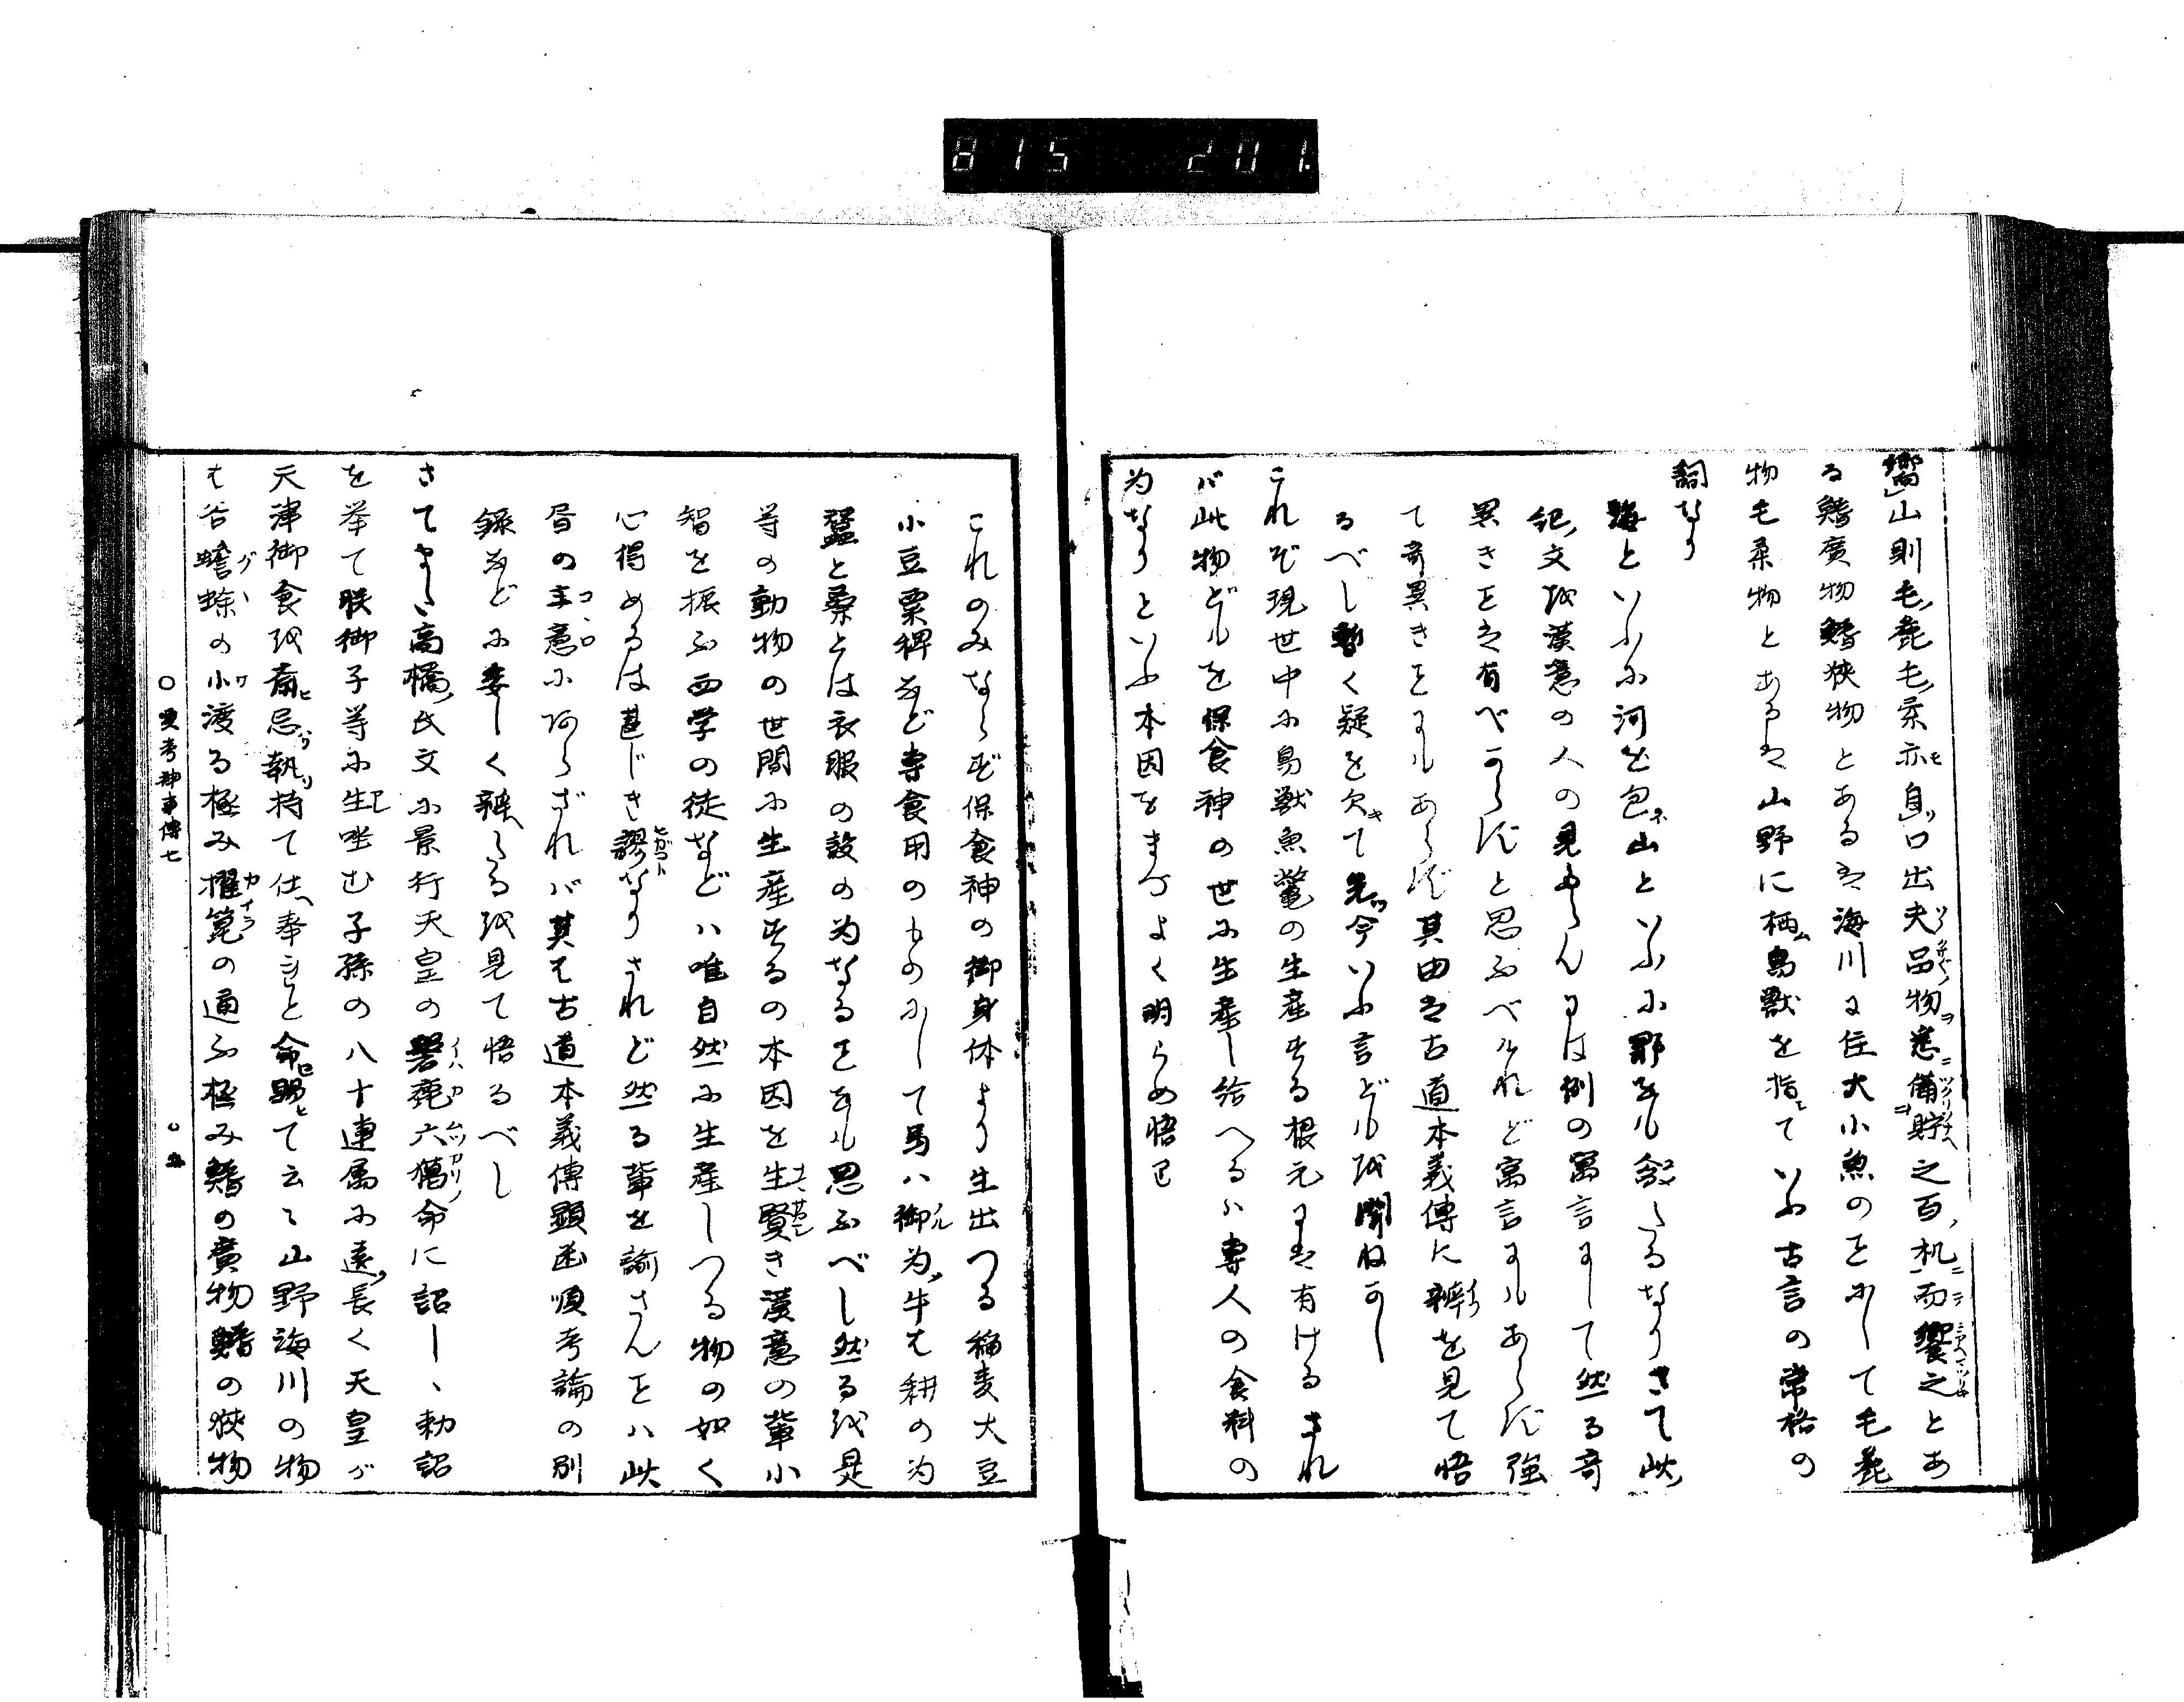 815 201
嚮山則毛麁毛柔亦自口出夫品物悉備貯之百机而饗之とあ
る鰭廣物鰭狭物とあるは海川に住大小魚のことにして毛麁
物毛柔物とあるは山野に栖鳥獣を指ていふ古言の常格の
詞なり
海といふに河を包山といふに野をも含たるなりさて此
紀文を漢意の人の見たらんには例の寓言にして然る奇
異きことは有べからずと思ふべけれど寓言にもあらず強
て奇異きことにもあらず其由は古道本義傳に辨を見て悟
るべし暫く疑を欠て先今いふ言どもを聞ねかし
これぞ現世中に鳥獣魚鼈の生産する根元には有けるされ
ば此物どもを保食神の世に生産し給へるハ専人の食料の
為なりといふ本因をまづよく明らめ悟るべし
これのみならず保食神の御身体より生出つる稲麦大豆
小豆粟稗など専食用のものにして馬ハ御為牛は耕の為
蠶と桑とは衣服の設の為なることをも思ふべし然るを是
等の動物の世間に生産するの本因を生賢き漢意の輩小
智を振ふ西学の徒などハ唯自然に生産しつる物の如く
心得めるは甚じき謬なりされど然る輩を諭さんことハ此
書の主意にあらざれバ其は古道本義傳顕幽順考論の別
録などに委しく辨へたるを見て悟るべし
さてまた高橋氏文に景行天皇の磐鹿六獦命に詔し、勅詔
を挙て朕御子等に生坐む子孫の八十連属に遠長く天皇が
天津御食を斎忌執持て仕奉うと命賜て云々山野海川の物
は谷蟾蜍の小渡る極み櫂箟の通ふ極み鰭の廣物鰭の狭物
○眞考神事傳七